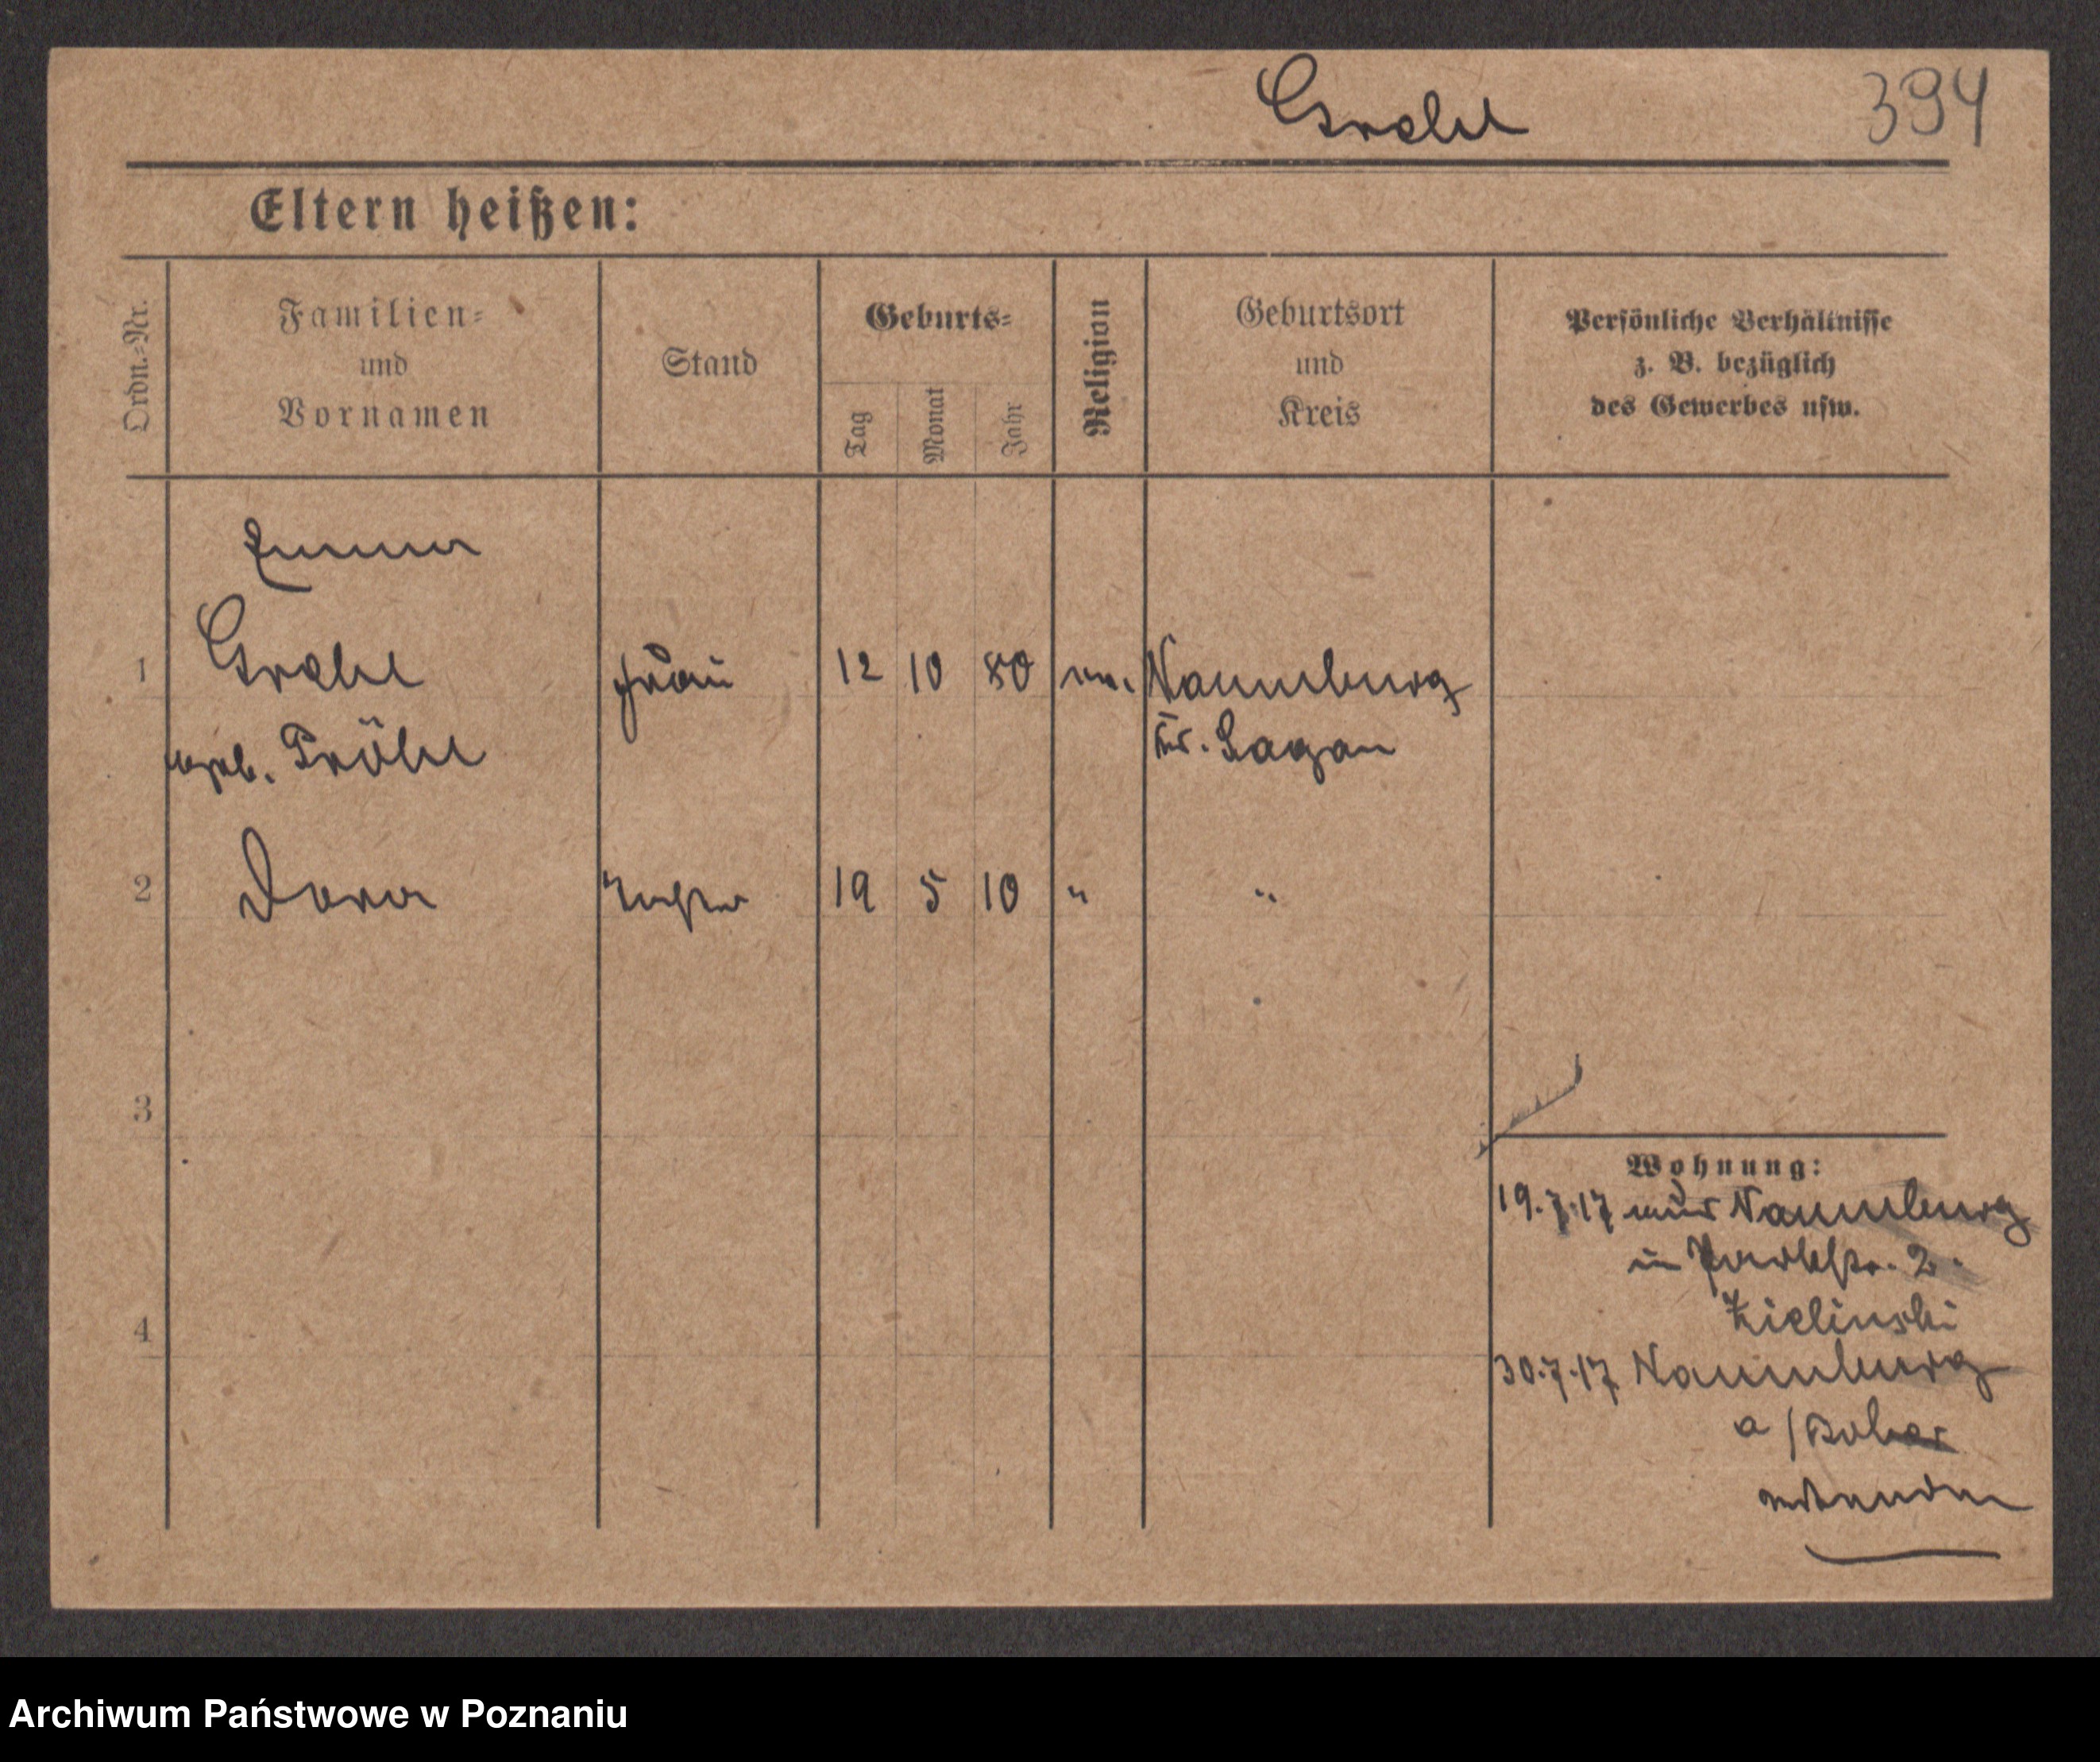 Grabe 394
Eltern heißen:
Ordn.-Nr.
Familien-
und
Vornamen
Stand
Geburts-
Tag
Monat
Jahr
Religion
Geburtsort
und
Kreis
Persönliche Verhältnisse
z. B. bezüglich
des Gewerbes usw.
Emma
1 Grabe Frau 12 10 80 ev. Naumburg
geb. Pröhl Kr. Sagan
2 Dora Tochter 19 5 10 " "
3
Wohnung:
19.7.17 aus Naumburg
in Parkstr. 2.
Zielinski
4
30.7.17 Naumburg
a/Bober
Archiwum Państwowe w Poznaniu